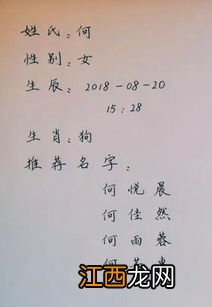 姓氏：何
性别：女
生辰：2018-08-20
15：28
生肖：狗
推荐名字：
何悦晨
何佳然
何雨蓉
何
江西龙网